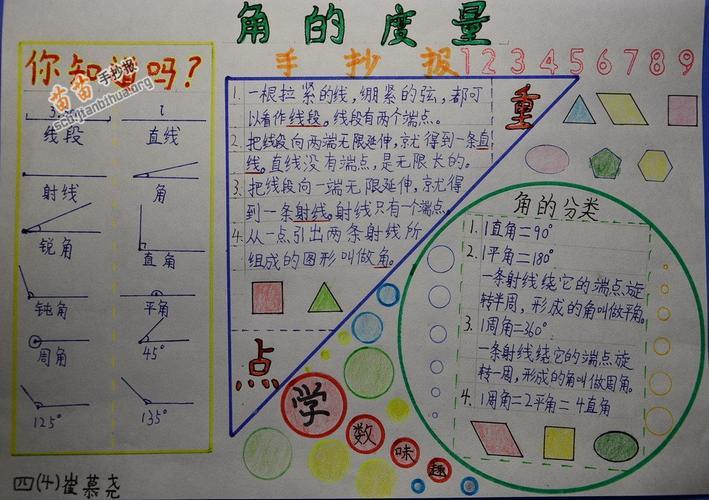 角的度量
手抄报
123456789
你知道吗?
苗苗手抄报
线段
直线
射线
角
锐角
直角
钝角
平角
周角
45°
125°
135°
1. 一根拉紧的线，绷紧的弦，都可
以看作线段。线段有两个端点。
2. 把线段向两端无限延伸，就得到一条直
线。直线没有端点，是无限长的。
3. 把线段向一端无限延伸，就得
到一条射线。射线只有一个端点。
4. 从一点引出两条射线所
组成的图形叫做角。
重
点
角的分类
1. 1直角=90°
2. 1平角=180°
一条射线绕它的端点旋
转半周，形成的角叫做平角。
3. 1周角=360°
一条射线绕它的端点旋
转一周，形成的角叫做周角。
4. 1周角=2平角=4直角
学
数
味
趣
四(4)崔慕尧